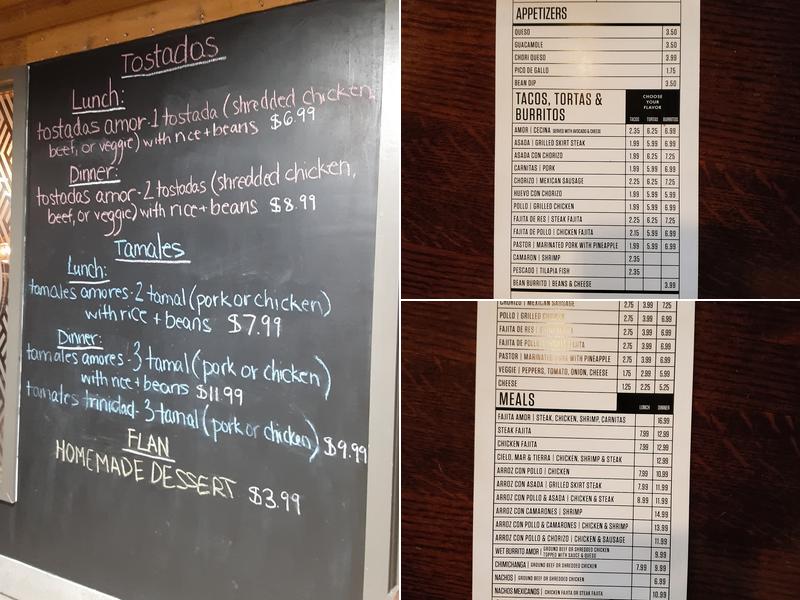 Tostadas
Lunch:
tostadas amor-1 tostada (shredded chicken,
beef, or veggie) with rice + beans $6.99
Dinner:
tostadas amor-2 tostadas (shredded chicken,
beef, or veggie) with rice + beans $8.99
Tamales
Lunch:
tamales amores-2 tamal (pork or chicken)
with rice + beans $7.99
Dinner:
tamales amores-3 tamal (pork or chicken)
with rice + beans $11.99
tamales trinidad-3 tamal (pork or chicken) $9.99
FLAN
HOMEMADE DESSERT $3.99
APPETIZERS
QUESO 3.50
GUACAMOLE 3.50
CHORI QUESO 3.99
PICO DE GALLO 1.75
BEAN DIP 3.50
TACOS, TORTAS &
BURRITOS
CHOOSE
YOUR
FLAVOR
TACOS TORTAS BURRITOS
AMOR | CECINA SERVED WITH AVOCADO & CHEESE 2.35 6.25 6.99
ASADA | GRILLED SKIRT STEAK 1.99 5.99 6.99
ASADA CON CHORIZO 1.99 6.25 7.25
CARNITAS | PORK 1.99 5.99 6.99
CHORIZO | MEXICAN SAUSAGE 2.25 6.25 7.25
HUEVO CON CHORIZO 1.99 5.99 6.99
POLLO | GRILLED CHICKEN 1.99 5.99 6.99
FAJITA DE RES | STEAK FAJITA 2.25 6.25 7.25
FAJITA DE POLLO | CHICKEN FAJITA 2.15 5.99 6.99
PASTOR | MARINATED PORK WITH PINEAPPLE 1.99 5.99 6.99
CAMARON | SHRIMP 2.35
PESCADO | TILAPIA FISH 2.35
BEAN BURRITO | BEANS & CHEESE 3.99
CHORIZO | MEXICAN SAUSAGE 2.75 3.99 7.25
POLLO | GRILLED CHICKEN 2.75 3.99 6.99
FAJITA DE RES 2.75 3.99 6.99
FAJITA DE POLLO FAJITA 2.75 3.99 6.99
PASTOR | MARINATED PORK WITH PINEAPPLE 2.75 3.99 6.99
VEGGIE | PEPPERS, TOMATO, ONION, CHEESE 1.75 2.99 5.99
CHEESE 1.25 2.25 5.25
MEALS
LUNCH DINNER
FAJITA AMOR | STEAK, CHICKEN, SHRIMP, CARNITAS 16.99
STEAK FAJITA 7.99 12.99
CHICKEN FAJITA 7.99 12.99
CIELO, MAR & TIERRA | CHICKEN, SHRIMP & STEAK 12.99
ARROZ CON POLLO | CHICKEN 7.99 10.99
ARROZ CON ASADA | GRILLED SKIRT STEAK 7.99 11.99
ARROZ CON POLLO & ASADA | CHICKEN & STEAK 8.99 11.99
ARROZ CON CAMARONES | SHRIMP 14.99
ARROZ CON POLLO & CAMARONES | CHICKEN & SHRIMP 13.99
ARROZ CON POLLO & CHORIZO | CHICKEN & SAUSAGE 11.99
WET BURRITO AMOR | GROUND BEEF OR SHREDDED CHICKEN
TOPPED WITH SAUCE & QUESO 9.99
CHIMICHANGA | GROUND BEEF OR SHREDDED CHICKEN 7.99 9.99
NACHOS | GROUND BEEF OR SHREDDED CHICKEN 6.99
NACHOS MEXICANOS | CHICKEN FAJITA OR STEAK FAJITA 10.99